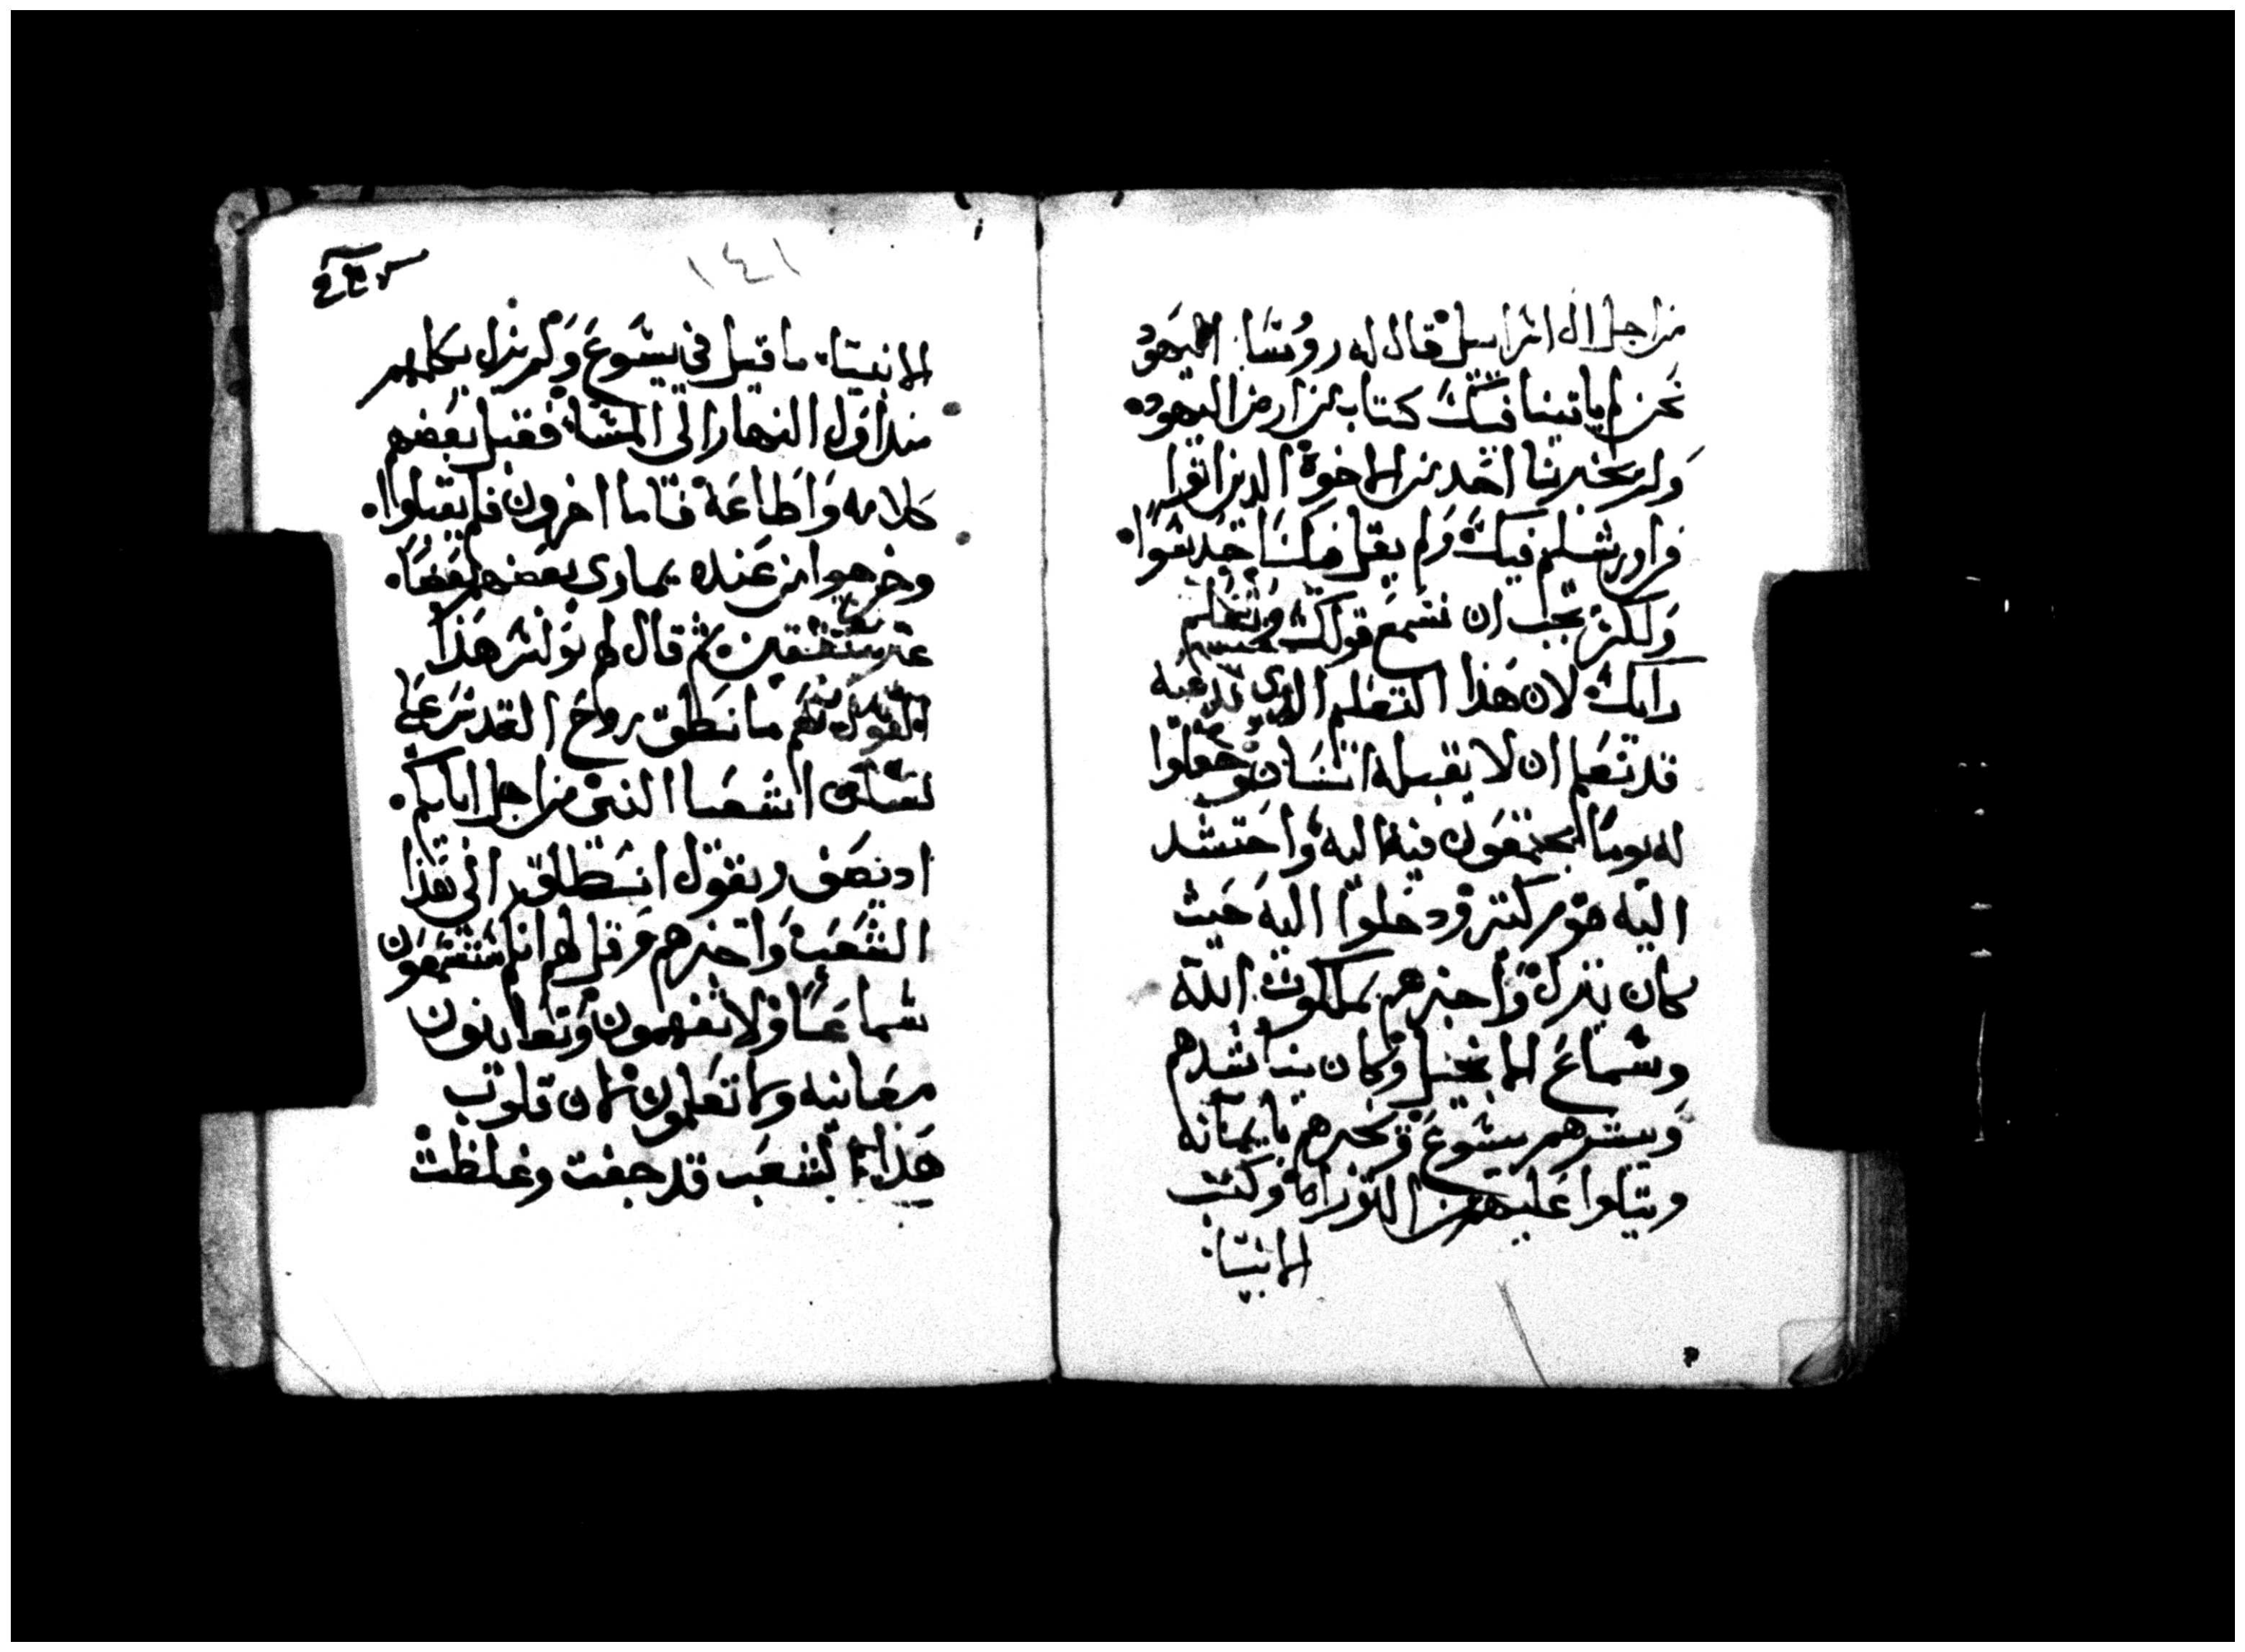 من اجل ال اسراييل قال له روسا اليهود
نحن لم ياتينا فيك كتاب من ارض اليهود
ولم يخبرنا احد من الاخوة الدين اتوا
من اورشليم فيك ولم يقل فيك
ولكن نحب ان نسمع قولك ونعلم
رايك لان هذا التعليم الدي
قد نعلم ان لا يقبله انسان وجعلوا
له يوما يجتمعون فيه اليه واحتشد
اليه قوم كتير ودخلوا اليه حيث
كان ينزل واخبرهم بملكوت الله
وسماع الانجيل وكان يناشدهم
ويبشرهم بيشوع ويخبرهم بايمانه
ويتلوا عليهم من التوراة وكتب
الانبيا
١٤١
الانبيا ما قيل في يشوع ولم يزل يكلمهم
مند اول النهار الى المسا فقبل بعضهم
كلامه واطاعة فاما اخرون فلم يقبلوا
وخرجوا من عنده يماري بعضهم بعضا
غير متفقين ثم قال لهم بولس هذا
القول نعم ما نطق روح القدس على
لسان اشعيا النبي من اجل ابايكم
اد يصف ويقول انطلق الى هذا
الشعب واخبرهم وقل لهم انكم ستسمعون
سماعا ولا تفهمون وتعاينون
معاينه ولا تعلمون لان قلوب
هذا الشعب قد جفت وغلظت